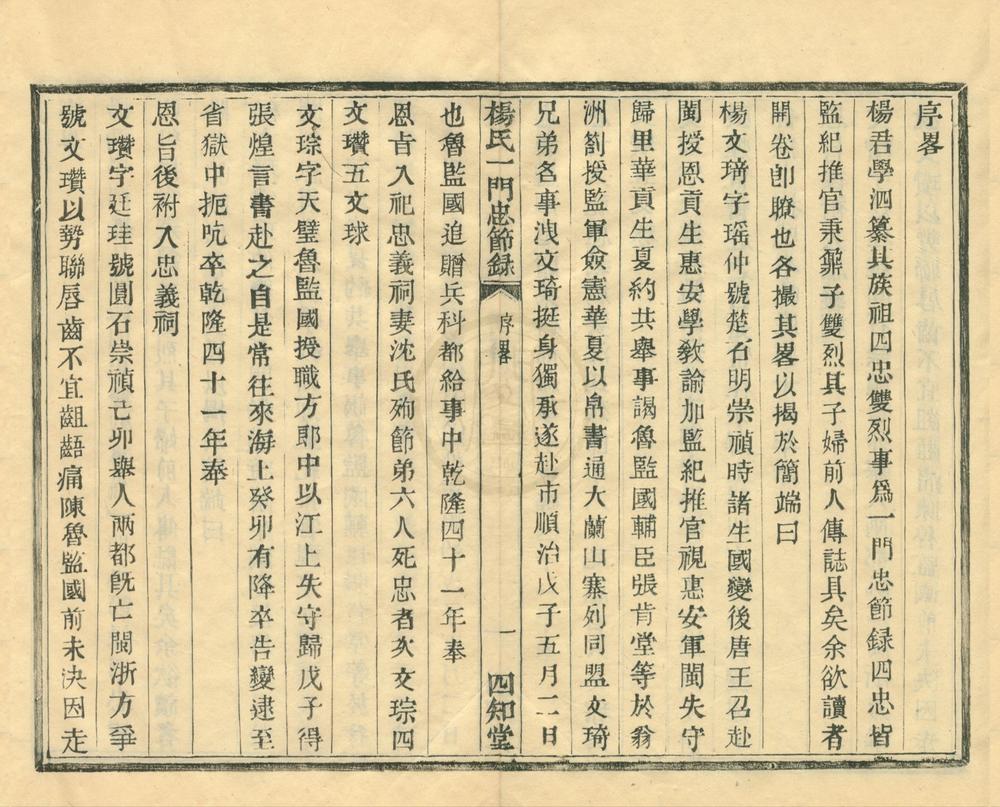 序畧
楊君學泗纂其族祖四忠雙烈事爲一門忠節録四忠皆
監紀推官秉鼐子雙烈其子婦前人傳誌具矣余欲讀者
開卷卽瞭也各撮其畧以揭於簡端曰
楊文琦字瑶仲號楚石明崇禎時諸生國變後唐王召赴
閩授恩貢生惠安學敎諭加監紀推官視惠安軍閩失守
歸里華貢生夏約共舉事謁魯監國輔臣張肯堂等於翁
洲劄授監軍僉憲華夏以帛書通大蘭山寨列同盟文琦
兄弟名事洩文琦挺身獨承遂赴市順治戊子五月二日
楊氏一門忠節録
序畧
一
四知堂
也魯監國追贈兵科都給事中乾隆四十一年奉
恩旨入祀忠義祠妻沈氏殉節弟六人死忠者次文琮四
文瓚五文球
文琮字天璧魯監國授職方郎中以江上失守歸戊子得
張煌言書赴之自是常往來海上癸卯有降卒告變逮至
省獄中扼吭卒乾隆四十一年奉
恩旨後祔入忠義祠
文瓚字廷珪號圓石崇禎己卯舉人兩都旣亡閩浙方爭
號文瓚以勢聯唇齒不宜齟齬痛陳魯監國前未決因走